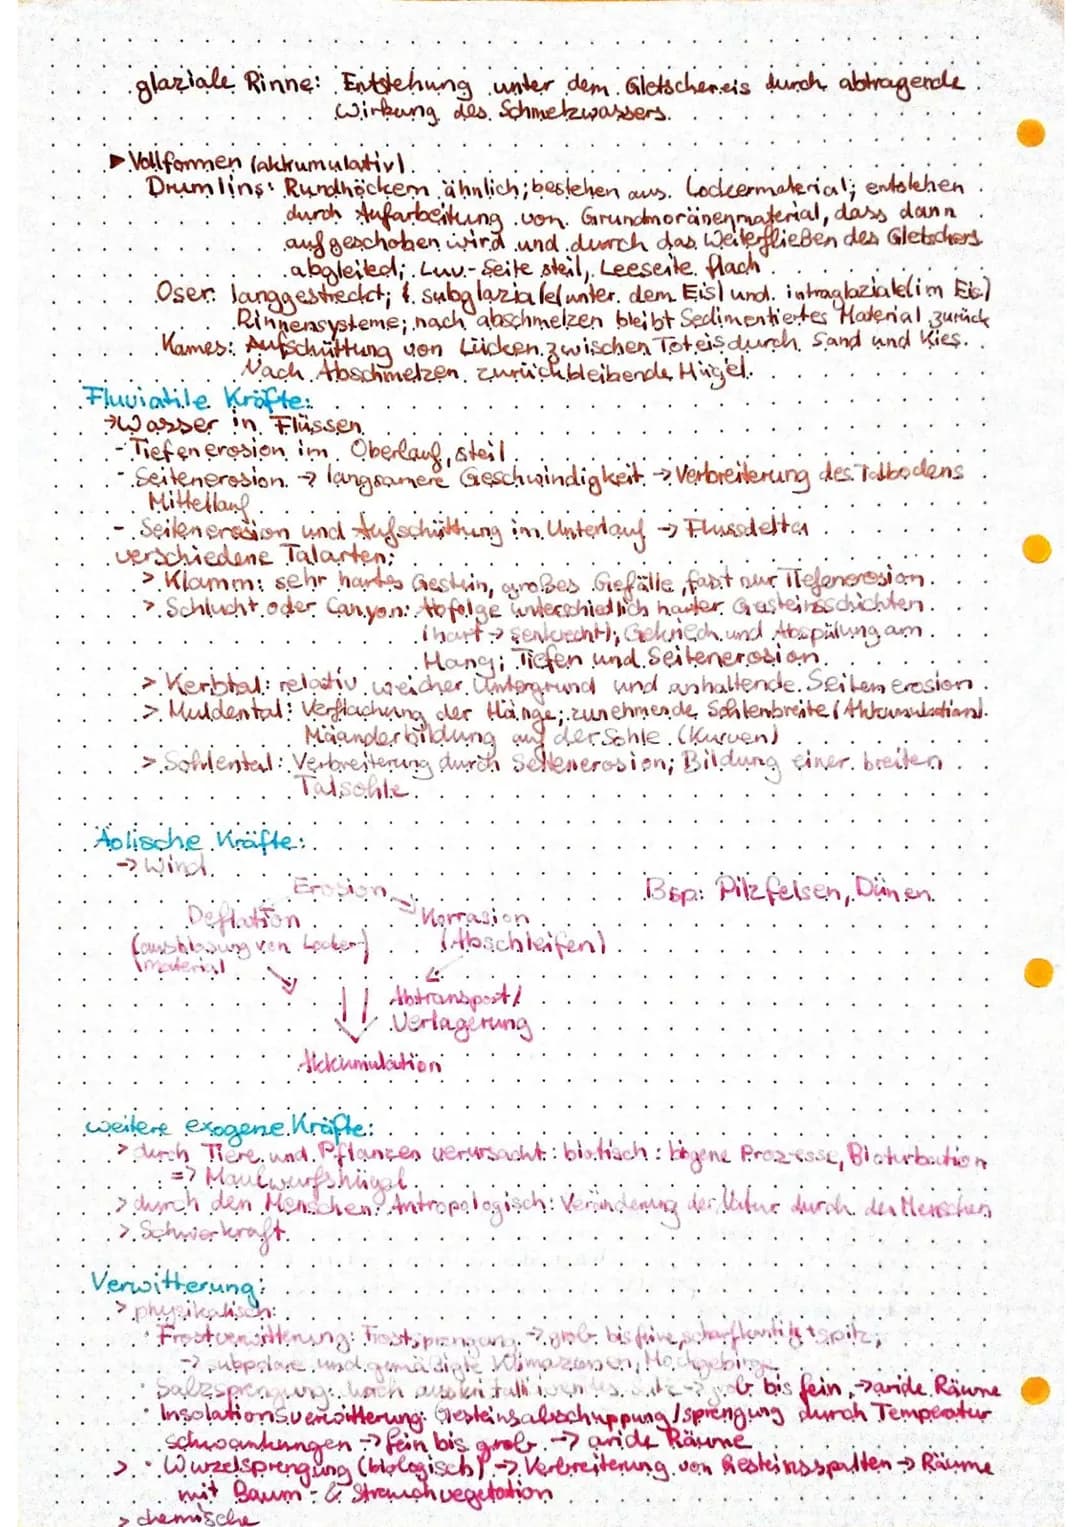 glaziale Rinne: Entstehung unter dem Gletschereis durch abtragende
Wirkung des Schmelzwassers.
▶ Vollformen (akkumulativ)
Drumlins: Rundhöckern ähnlich; bestehen aus Lockermaterial; entstehen
durch Aufarbeitung von Grundmoränenmaterial, dass dann
aufgeschoben wird und durch das Weiterfließen des Gletschers
abgleited; Luv-Seite steil, Leeseite flach
Oser: langgestreckt; subglaziale (unter dem Eis) und intraglaziale (im Eis)
Rinnensysteme; nach abschmelzen bleibt Sedimentiertes Material zurück
Kames: Aufschüttung von Lücken zwischen Toteis durch Sand und Kies.
Nach Abschmelzen zurückbleibende Hügel.
Fluviatile Kräfte:
→ Wasser in Flüssen
- Tiefenerosion im Oberlauf, steil
- Seitenerosion → langsamere Geschwindigkeit → Verbreiterung des Talbodens
Mittellauf
- Seitenerosion und Aufschüttung im Unterlauf → Flussdelta
verschiedene Talarten:
> Klamm: sehr hartes Gestein, großes Gefälle, fast nur Tiefenerosion
> Schlucht oder Canyon: Abfolge unterschiedlich harter Gesteinsschichten
(hart → senkrecht), Gekriech und Abspülung am
Hang; Tiefen und Seitenerosion
> Kerbtal: relativ weicher Untergrund und anhaltende Seitenerosion
> Muldental: Verflachung der Hänge; zunehmende Sohlenbreite (Akkumulation)
Mäanderbildung auf der Sohle (Kurven)
> Sohlental: Verbreiterung durch Seitenerosion; Bildung einer breiten
Talsohle
Äolische Kräfte:
→ Wind
Erosion
Bsp: Pilzfelsen, Dünen
Deflation
Korrasion
(ausblasung von Locker-
material)
(Abschleifen)
Abtransport /
Verlagerung
Akkumulation
weitere exogene Kräfte:
> durch Tiere und Pflanzen verursacht: biotisch: biogene Prozesse, Bioturbation
=> Maulwurfshügel
> durch den Menschen: Antropologisch: Veränderung der Natur durch den Menschen
> Schwerkraft
Verwitterung:
> physikalisch:
· Frostverwitterung: Frostsprengung → grob bis feine, scharfkantig + spitz;
→ subpolare und gemäßigte Klimazonen, Hochgebirge
· Salzsprengung: durch → grob bis fein, → aride Räume
· Insolationsverwitterung: Gesteinsabschuppung / sprengung durch Temperatur
schwankungen → fein bis grob → aride Räume
> · Wurzelsprengung (biologisch) → Verbreiterung von Gesteinsspalten → Räume
mit Baum- & Strauchvegetation
> chemische